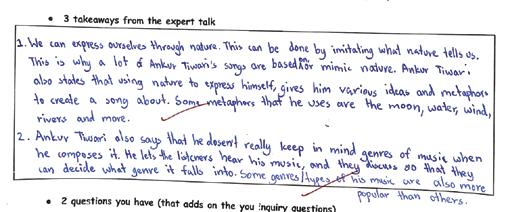 • 3 takeaways from the expert talk
1. We can express ourselves through nature. This can be done by imitating what nature tells us.
This is why a lot of Ankur Tiwari's songs are based on or mimic nature. Ankur Tiwari
also states that using nature to express himself, gives him various ideas and metaphors
to create a song about. Some metaphors that he uses are the moon, water, wind,
rivers and more.
2. Ankur Tiwari also says that he doesn't really keep in mind genres of music when
he composes it. He lets the listeners hear his music, and they discuss so that they
can decide what genre it falls into. Some genres/types of his music are also more
popular than others.
• 2 questions you have (that adds on the you inquiry questions)